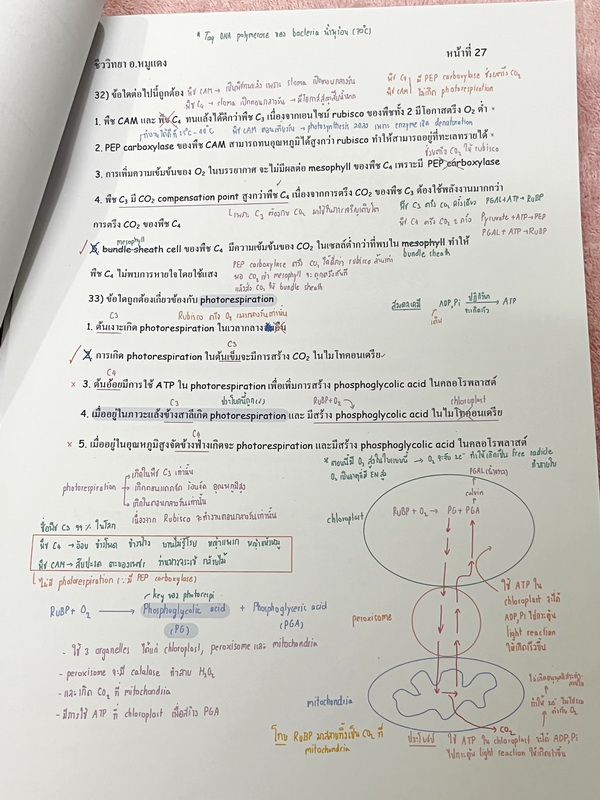 * Taq DNA polymerase ของ bacteria น้ำพุร้อน (70°C)
ชีววิทยา อ.หมูแดง
หน้าที่ 27
32) ข้อใดต่อไปนี้ถูกต้อง
พืช C4 → stoma เปิดตอนกลางวัน
มี PEP carboxylase ช่วยตรึง CO2
ไม่เกิด photorespiration
1. พืช CAM และ พืช C4 ทนแล้งได้ดีกว่าพืช C3 เนื่องจากเอนไซม์ rubisco ของพืชทั้ง 2 มีโอกาสตรึง O2 ต่ำ ×
พืช CAM ตอนเที่ยงวัน → photosynthesis ลดลง เพราะ enzyme เกิด denaturation
2. PEP carboxylase ของพืช CAM สามารถทนอุณหภูมิได้สูงกว่า rubisco ทำให้สามารถอยู่ที่ทะเลทรายได้ ×
ช่วยตรึง CO2 ให้ rubisco
3. การเพิ่มความเข้มข้นของ O2 ในบรรยากาศ จะไม่มีผลต่อ mesophyll ของพืช C4 เพราะมี PEP carboxylase
4. พืช C3 มี CO2 compensation point สูงกว่าพืช C4 เนื่องจากการตรึง CO2 ของพืช C3 ต้องใช้พลังงานมากกว่า
พืช C3 ตรึง CO2 ครั้งเดียว PGAL+ATP→RuBP
การตรึง CO2 ของพืช C4
พืช C4 ตรึง CO2 2 ครั้ง Pyruvate+ATP→PEP
PGAL+ATP→RuBP
mesophyll
5. bundle sheath cell ของพืช C4 มีความเข้มข้นของ CO2 ในเซลล์ต่ำกว่าที่พบใน mesophyll ทำให้
bundle sheath
พืช C4 ไม่พบการหายใจโดยใช้แสง
PEP carboxylase ตรึง CO2 ได้ดีกว่า rubisco
33) ข้อใดถูกต้องเกี่ยวข้องกับ photorespiration
ADP,Pi → ATP
C3
Rubisco ตรึง O2 เฉพาะกลางวันเท่านั้น
1. ต้นเงาะเกิด photorespiration ในเวลากลางคืน
C3
2. การเกิด photorespiration ในต้นเข็มจะมีการสร้าง CO2 ในไมโทคอนเดรีย
C4
× 3. ต้นอ้อยมีการใช้ ATP ใน photorespiration เพื่อเพิ่มการสร้าง phosphoglycolic acid ในคลอโรพลาสต์
C3
RuBP+O2
chloroplast
4. เมื่ออยู่ในภาวะแล้งข้าวสาลีเกิด photorespiration และ มีสร้าง phosphoglycolic acid ในไมโทคอนเดรีย
C4
× 5. เมื่ออยู่ในอุณหภูมิสูงจัดข้าวฟ่างเกิดจะ photorespiration และมีสร้าง phosphoglycolic acid ในคลอโรพลาสต์
photorespiration
เกิดในพืช C3 เท่านั้น
เกิดตอนแดดจัด ร้อนจัด อุณหภูมิสูง
เกิดในตอนกลางวันเท่านั้น
เนื่องจาก Rubisco จะทำงานตอนกลางวันเท่านั้น
PGAL (น้ำตาล)
calvin
chloroplast
RuBP + O2 → PG + PGA
พืช C4 → อ้อย ข้าวโพด ข้าวฟ่าง บานไม่รู้โรย หญ้าแพรก หญ้าแห้วหมู
พืช CAM → สับปะรด ตะบองเพชร ว่านหางจระเข้ กล้วยไม้
ไม่มี photorespiration (∵ มี PEP carboxylase)
key ของ photorespi
RuBP + O2 → Phosphoglycolic acid + Phosphoglyceric acid
(PG) (PGA)
peroxisome
ใช้ ATP ใน
chloroplast จะได้
ADP,Pi ไปกระตุ้น
light reaction
ให้เกิดเร็วขึ้น
- ใช้ 3 organelles ได้แก่ chloroplast, peroxisome และ mitochondria
- peroxisome จะมี catalase ทำลาย H2O2
- และเกิด CO2 ที่ mitochondria
- มีการใช้ ATP ที่ chloroplast เพื่อสร้าง PGA
mitochondria
CO2
โทษ RuBP มาสลายทิ้งเป็น CO2 ที่
mitochondria
ประโยชน์ ใช้ ATP ใน chloroplast จะได้ ADP,Pi
ไปกระตุ้น light reaction ให้เกิดเร็วขึ้น